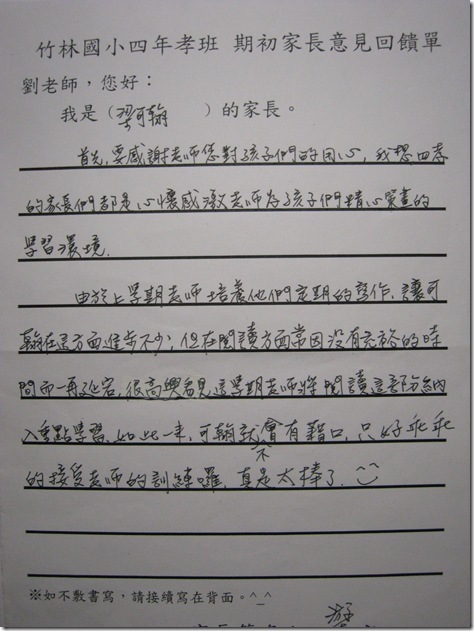 竹林國小四年孝班 期初家長意見回饋單
劉老師,您好:
我是(梁可翰 )的家長。
首先,要感謝老師您對孩子們的用心,我想四孝
的家長們都是心懷感激老師為孩子們精心策畫的
學習環境.
由於上學期老師培養他們定期的墊作,讓可
翰在這方面進步不少,但在閱讀方面常因沒有充裕的時
間而一再延宕,很高興看見這學期老師將閱讀這部份納
入重點學習.如此一來,可翰就不會有藉口,只好乖乖
的接受老師的訓練囉,真是太棒了.^^
※如不敷書寫,請接續寫在背面。^_^